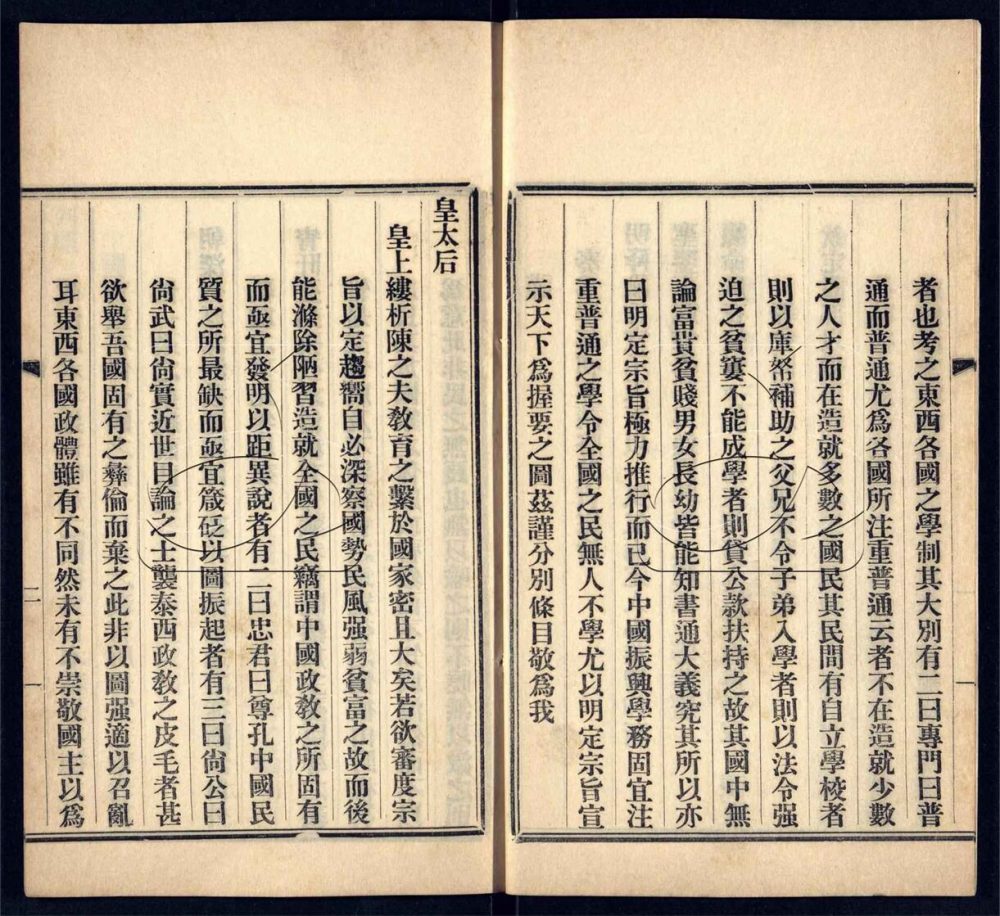 者也考之東西各國之學制其大別有二曰專門曰普
通而普通尤爲各國所注重普通云者不在造就少數
之人才而在造就多數之國民其民間有自立學校者
則以庫帑補助之父兄不令子弟入學者則以法令强
迫之貧窶不能成學者則貸公款扶持之故其國中無
論富貴貧賤男女長幼皆能知書通大義究其所以亦
曰明定宗旨極力推行而已今中國振興學務固宜注
重普通之學令全國之民無人不學尤以明定宗旨宣
示天下爲握要之圖茲謹分別條目敬爲我
皇太后
皇上縷析陳之夫敎育之繫於國家密且大矣若欲審度宗
旨以定趨嚮自必深察國勢民風强弱貧富之故而後
能滌除陋習造就全國之民竊謂中國政敎之所固有
而亟宜發明以距異說者有二曰忠君曰尊孔中國民
質之所最缺而亟宜箴砭以圖振起者有三曰尙公曰
尙武曰尙實近世目論之士襲泰西政敎之皮毛者甚
欲舉吾國固有之彝倫而棄之此非以圖强適以召亂
耳東西各國政體雖有不同然未有不崇敬國主以爲
二
一
一